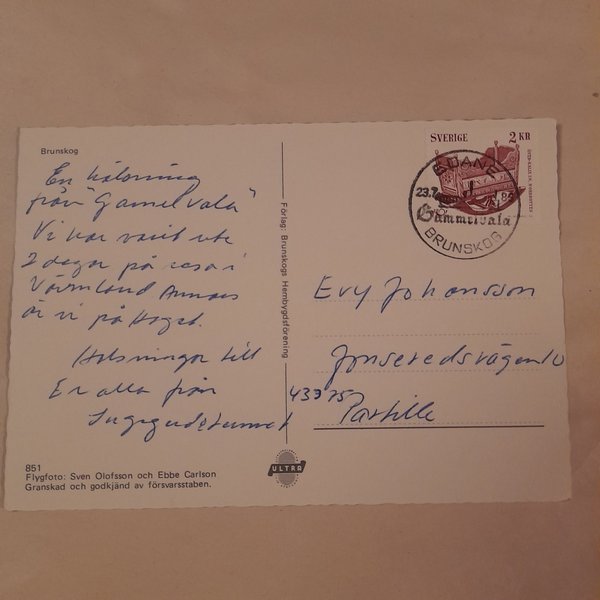 Brunskog
En hälsning
från "Gamelvala"
Vi har varit ute
2 dagar på resa i
Värmland Annars
är vi på Hoget.
Hälsningar till
Er alla från
851
Flygfoto: Sven Olofsson och Ebbe Carlson
Granskad och godkjänd av försvarsstaben.
Förlag: Brunskogs Hembygdsförening
ULTRA
SVERIGE 2 KR
EDANE
23.7
Gammelvala
BRUNSKOG
Evy Johansson
Jonseredsvägen 10
43375
Partille